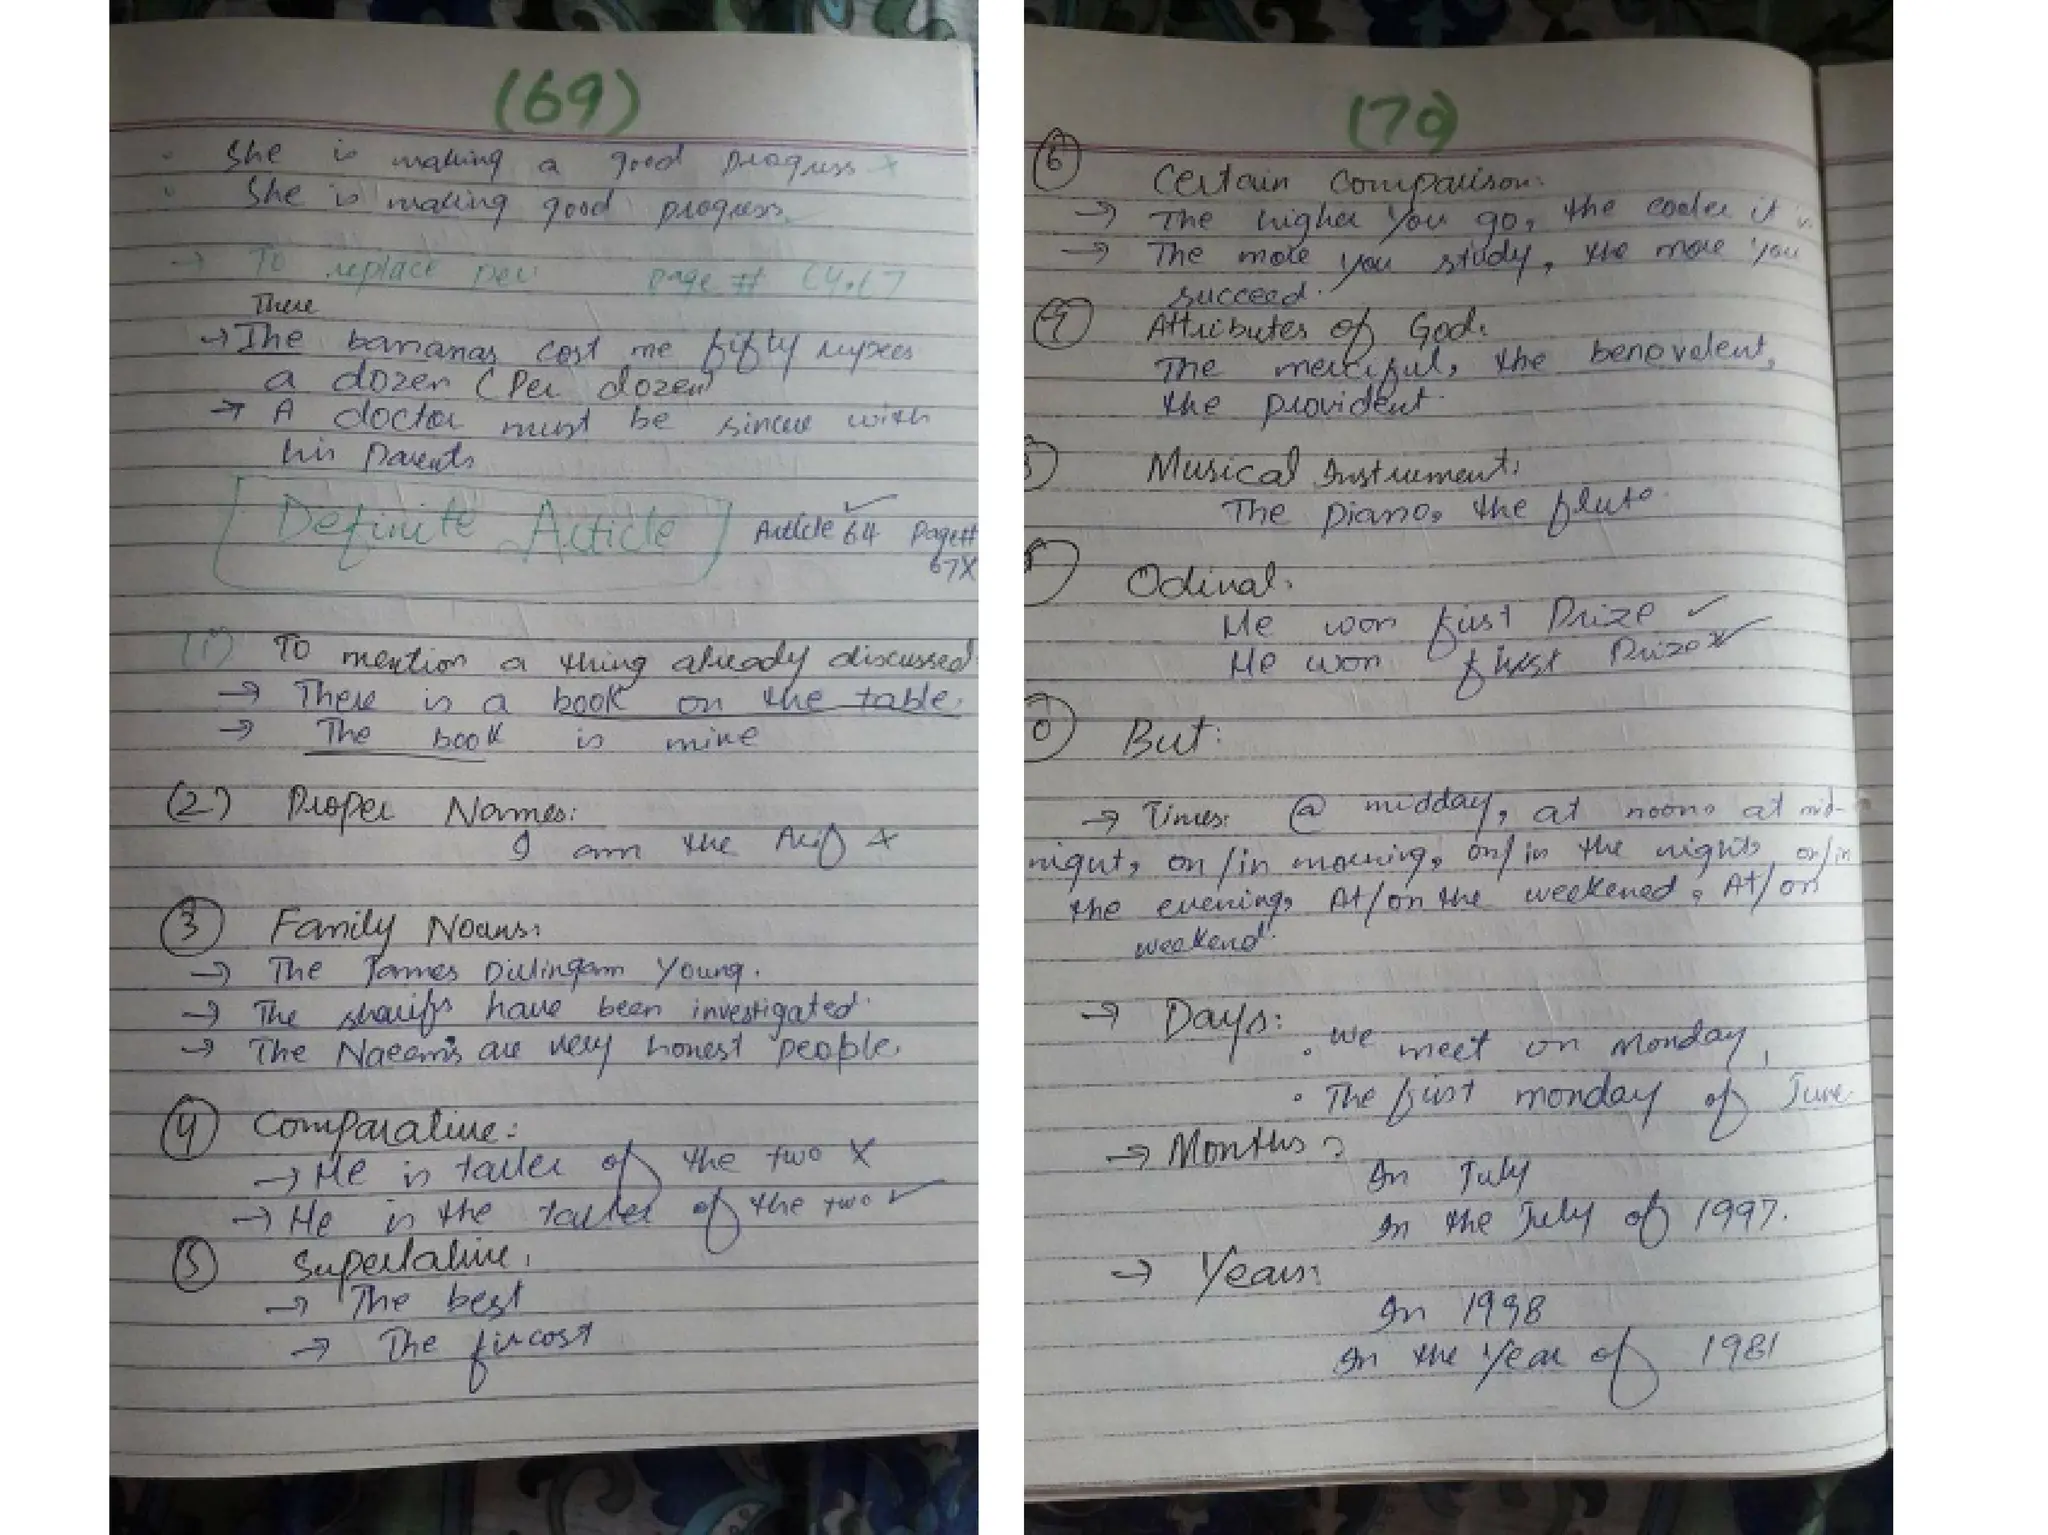 (69)
She is making a good progress ×
She is making good progress.
→ To replace per: Page # 64,67
There
→ The bananas cost me fifty rupees
a dozen (Per dozen)
→ A doctor must be sincere with
his Parents
Definite Article Article 64 ✓ Page#
67X
(1) To mention a thing already discussed
→ There is a book on the table.
→ The book is mine
(2) Proper Names:
I am the Arif ×
(3) Family Nouns:
→ The James Dillingam Young.
→ The sharifs have been investigated.
→ The Naeem's are very honest people.
(4) Comparative:
→ He is taller of the two ×
→ He is the taller of the two ✓
(5) Superlative.
→ The best
→ The
(70)
(6) Certain Comparison:
→ The higher you go, the cooler it is.
→ The more you study, the more you
succeed.
(7) Attributes of God:
The merciful, the benovelent,
the provident.
Musical Instrument:
The piano, the flute.
Odinal:
He won first Prize ✓
He won first Prize
But:
→ Times: @ midday, at noon, at mid-
night, on/in morning, on/in the night, on/in
the evening, At/on the weekened, At/on
weekend.
→ Days:
• We meet on Monday,
• The first monday of June.
→ Months:
In July
In the July of 1997.
→ Years:
In 1998
In the Year of 1981